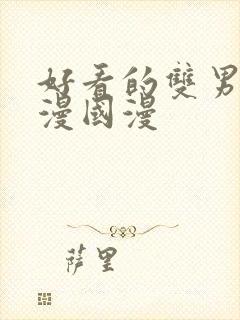 好看的雙男
漫國漫
薩里